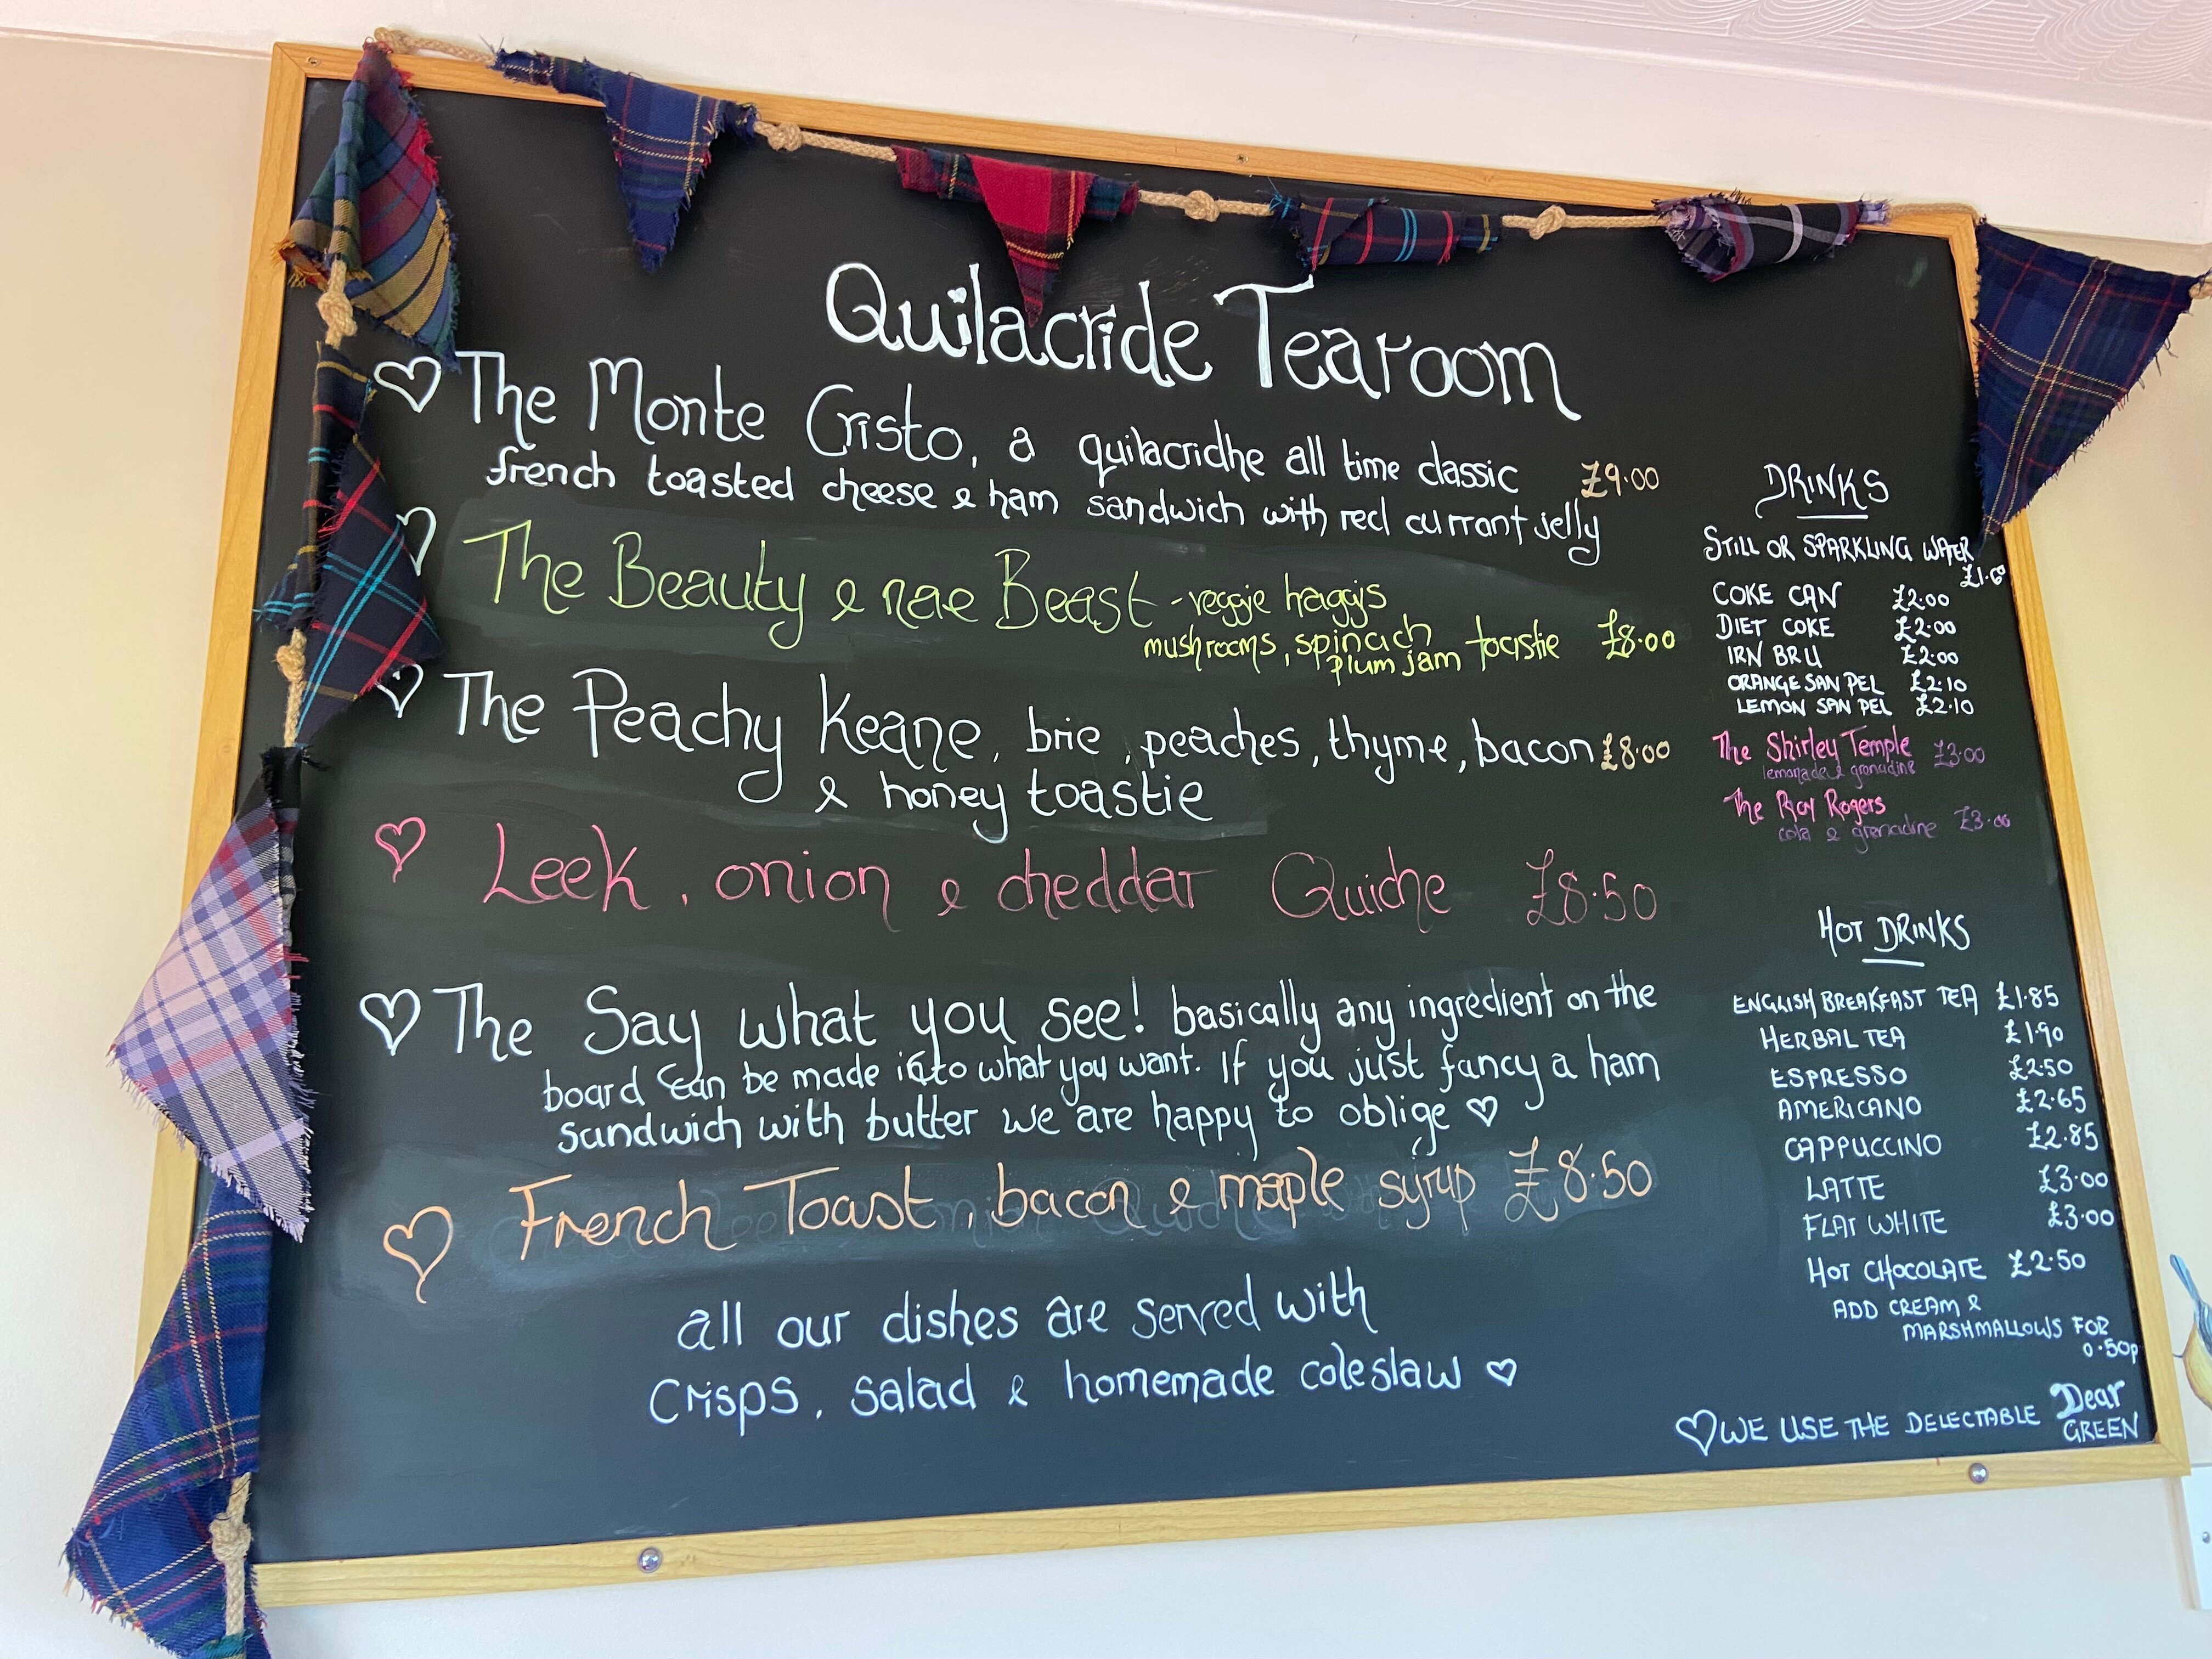 Quilacride Tearoom
The Monte Cristo, a quilacridhe all time classic £9.00
french toasted cheese & ham sandwich with red currant jelly
The Beauty & nae Beast - veggie haggis
mushrooms, spinach toastie £8.00
plum jam
The Peachy Keane, brie, peaches, thyme, bacon £8.00
& honey toastie
Leek, onion & cheddar Quiche £8.50
The Say what you see! basically any ingredient on the
board can be made into what you want. If you just fancy a ham
sandwich with butter we are happy to oblige
French Toast, bacon & maple syrup £8.50
all our dishes are served with
Crisps, salad & homemade coleslaw
DRINKS
STILL OR SPARKLING WATER
COKE CAN £2.00
DIET COKE £2.00
IRN BRU £2.00
ORANGE SAN PEL £2.10
LEMON SAN PEL £2.10
The Shirley Temple £3.00
lemonade & gronadine
The Roy Rogers
cola & grenadine £3.00
HOT DRINKS
ENGLISH BREAKFAST TEA £1.85
HERBAL TEA £1.90
ESPRESSO £2.50
AMERICANO £2.65
CAPPUCCINO £2.85
LATTE £3.00
FLAT WHITE £3.00
HOT CHOCOLATE £2.50
ADD CREAM &
MARSHMALLOWS FOR
0.50p
WE USE THE DELECTABLE Dear
GREEN